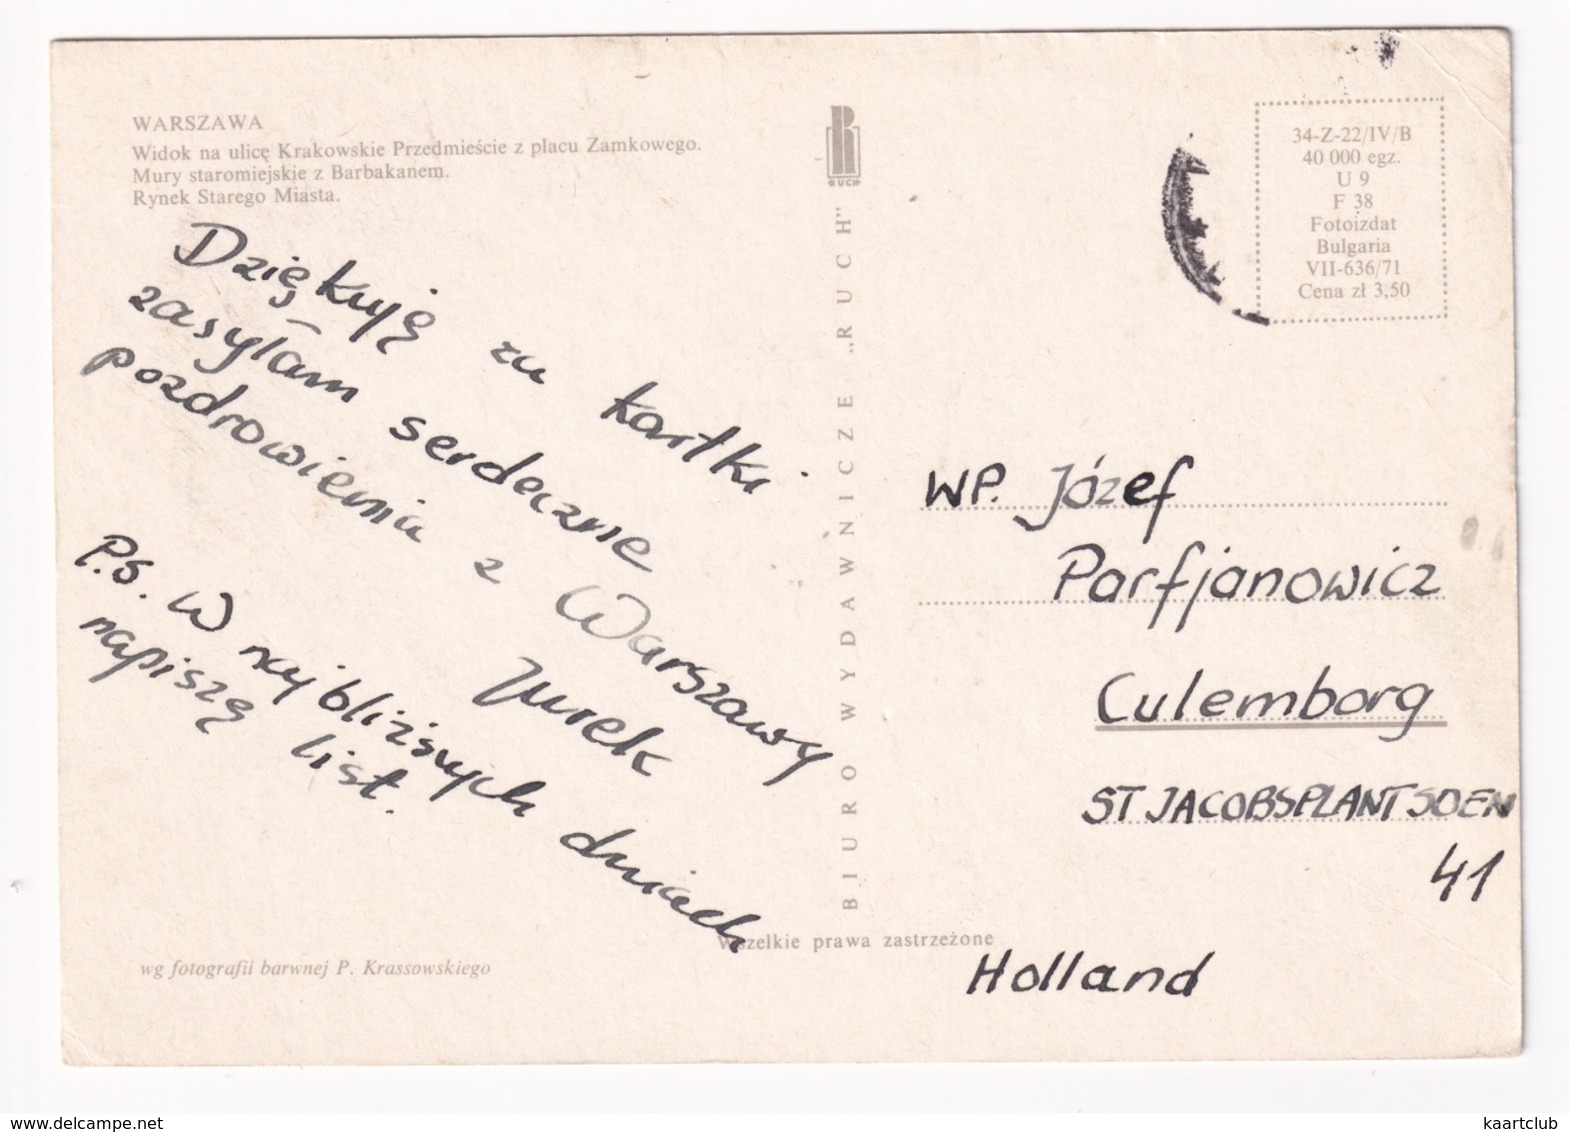 WARSZAWA
Widok na ulicę Krakowskie Przedmieście z placu Zamkowego.
Mury staromiejskie z Barbakanem.
Rynek Starego Miasta.
Dziękuję za kartki
zasyłam serdeczne
pozdrowienia z Warszawy
Jurek
P.S. W najbliższych dniach
napiszę list.
wg fotografii barwnej P. Krassowskiego
RUCH
BIURO WYDAWNICZE „RUCH"
Wszelkie prawa zastrzeżone
34-Z-22/IV/B
40 000 egz.
U 9
F 38
Fotoizdat
Bulgaria
VII-636/71
Cena zł 3,50
WP. Józef
Parfjanowicz
Culemborg
ST JACOBSPLANTSOEN
41
Holland
www.delcampe.net
kaartclub